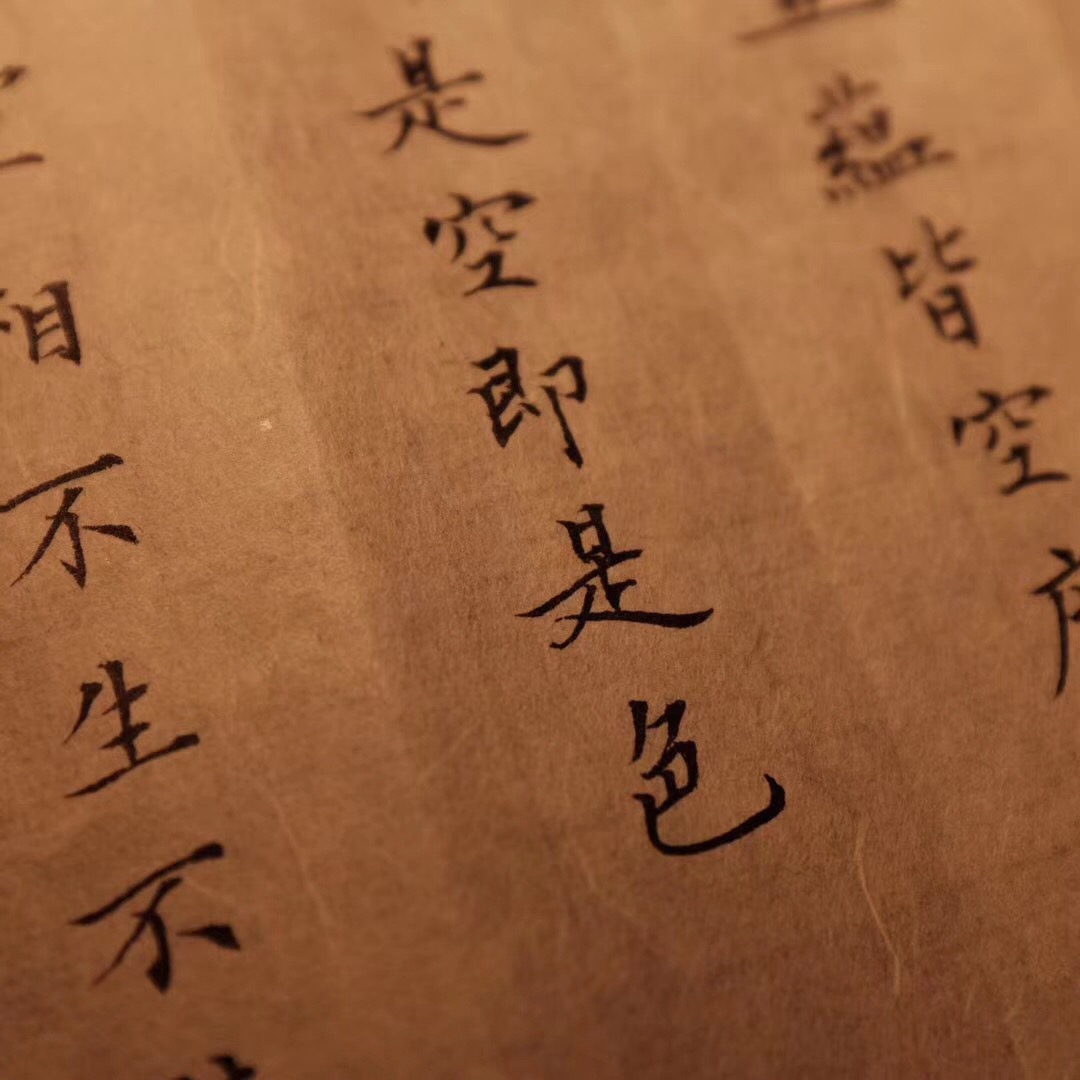 蕴皆空
是空即是色
相不生不